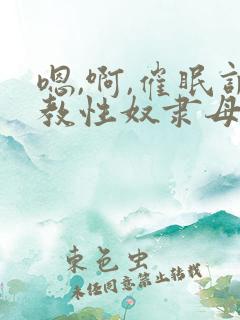 嗯,啊,催眠
教性奴隶母
束色虫
未经同意禁止转载